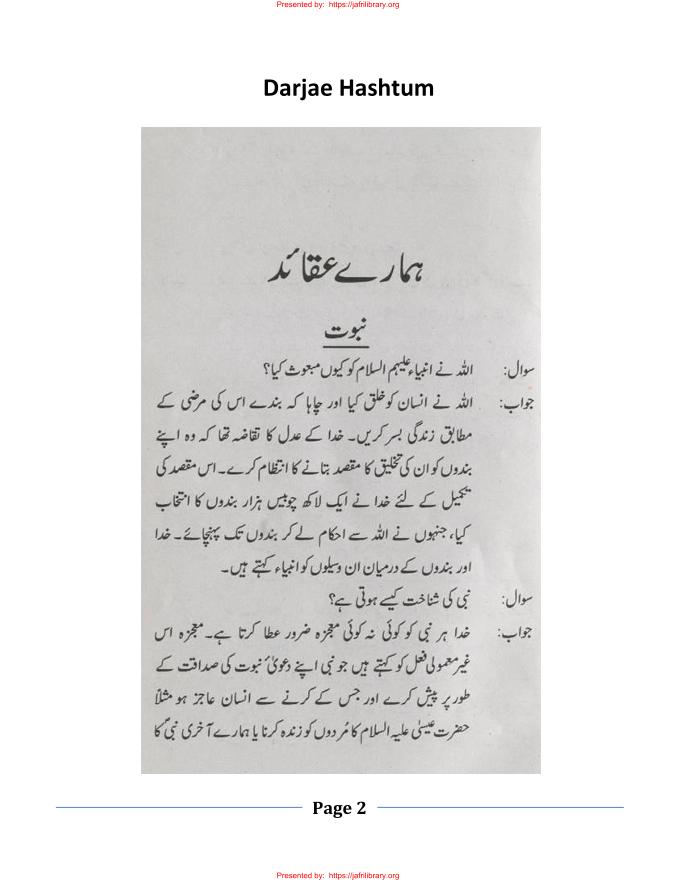 Presented by: https://jafrilibrary.org
Darjae Hashtum
ہمارے عقائد
نبوت
سوال: اللہ نے انبیاء علیہم السلام کو کیوں مبعوث کیا؟
جواب: اللہ نے انسان کو خلق کیا اور چاہا کہ بندے اس کی مرضی کے
مطابق زندگی بسر کریں۔ خدا کے عدل کا تقاضہ تھا کہ وہ اپنے
بندوں کو ان کی تخلیق کا مقصد بتانے کا انتظام کرے۔ اس مقصد کی
تکمیل کے لئے خدا نے ایک لاکھ چوبیس ہزار بندوں کا انتخاب
کیا، جنہوں نے اللہ سے احکام لے کر بندوں تک پہنچائے۔ خدا
اور بندوں کے درمیان ان وسیلوں کو انبیاء کہتے ہیں۔
سوال: نبی کی شناخت کیسے ہوتی ہے؟
جواب: خدا ہر نبی کو کوئی نہ کوئی معجزہ ضرور عطا کرتا ہے۔ معجزہ اس
غیر معمولی فعل کو کہتے ہیں جو نبی اپنے دعویٰ نبوت کی صداقت کے
طور پر پیش کرے اور جس کے کرنے سے انسان عاجز ہو مثلاً
حضرت عیسٰی علیہ السلام کا مُردوں کو زندہ کرنا یا ہمارے آخری نبیؐ کا
Page 2
Presented by: https://jafrilibrary.org